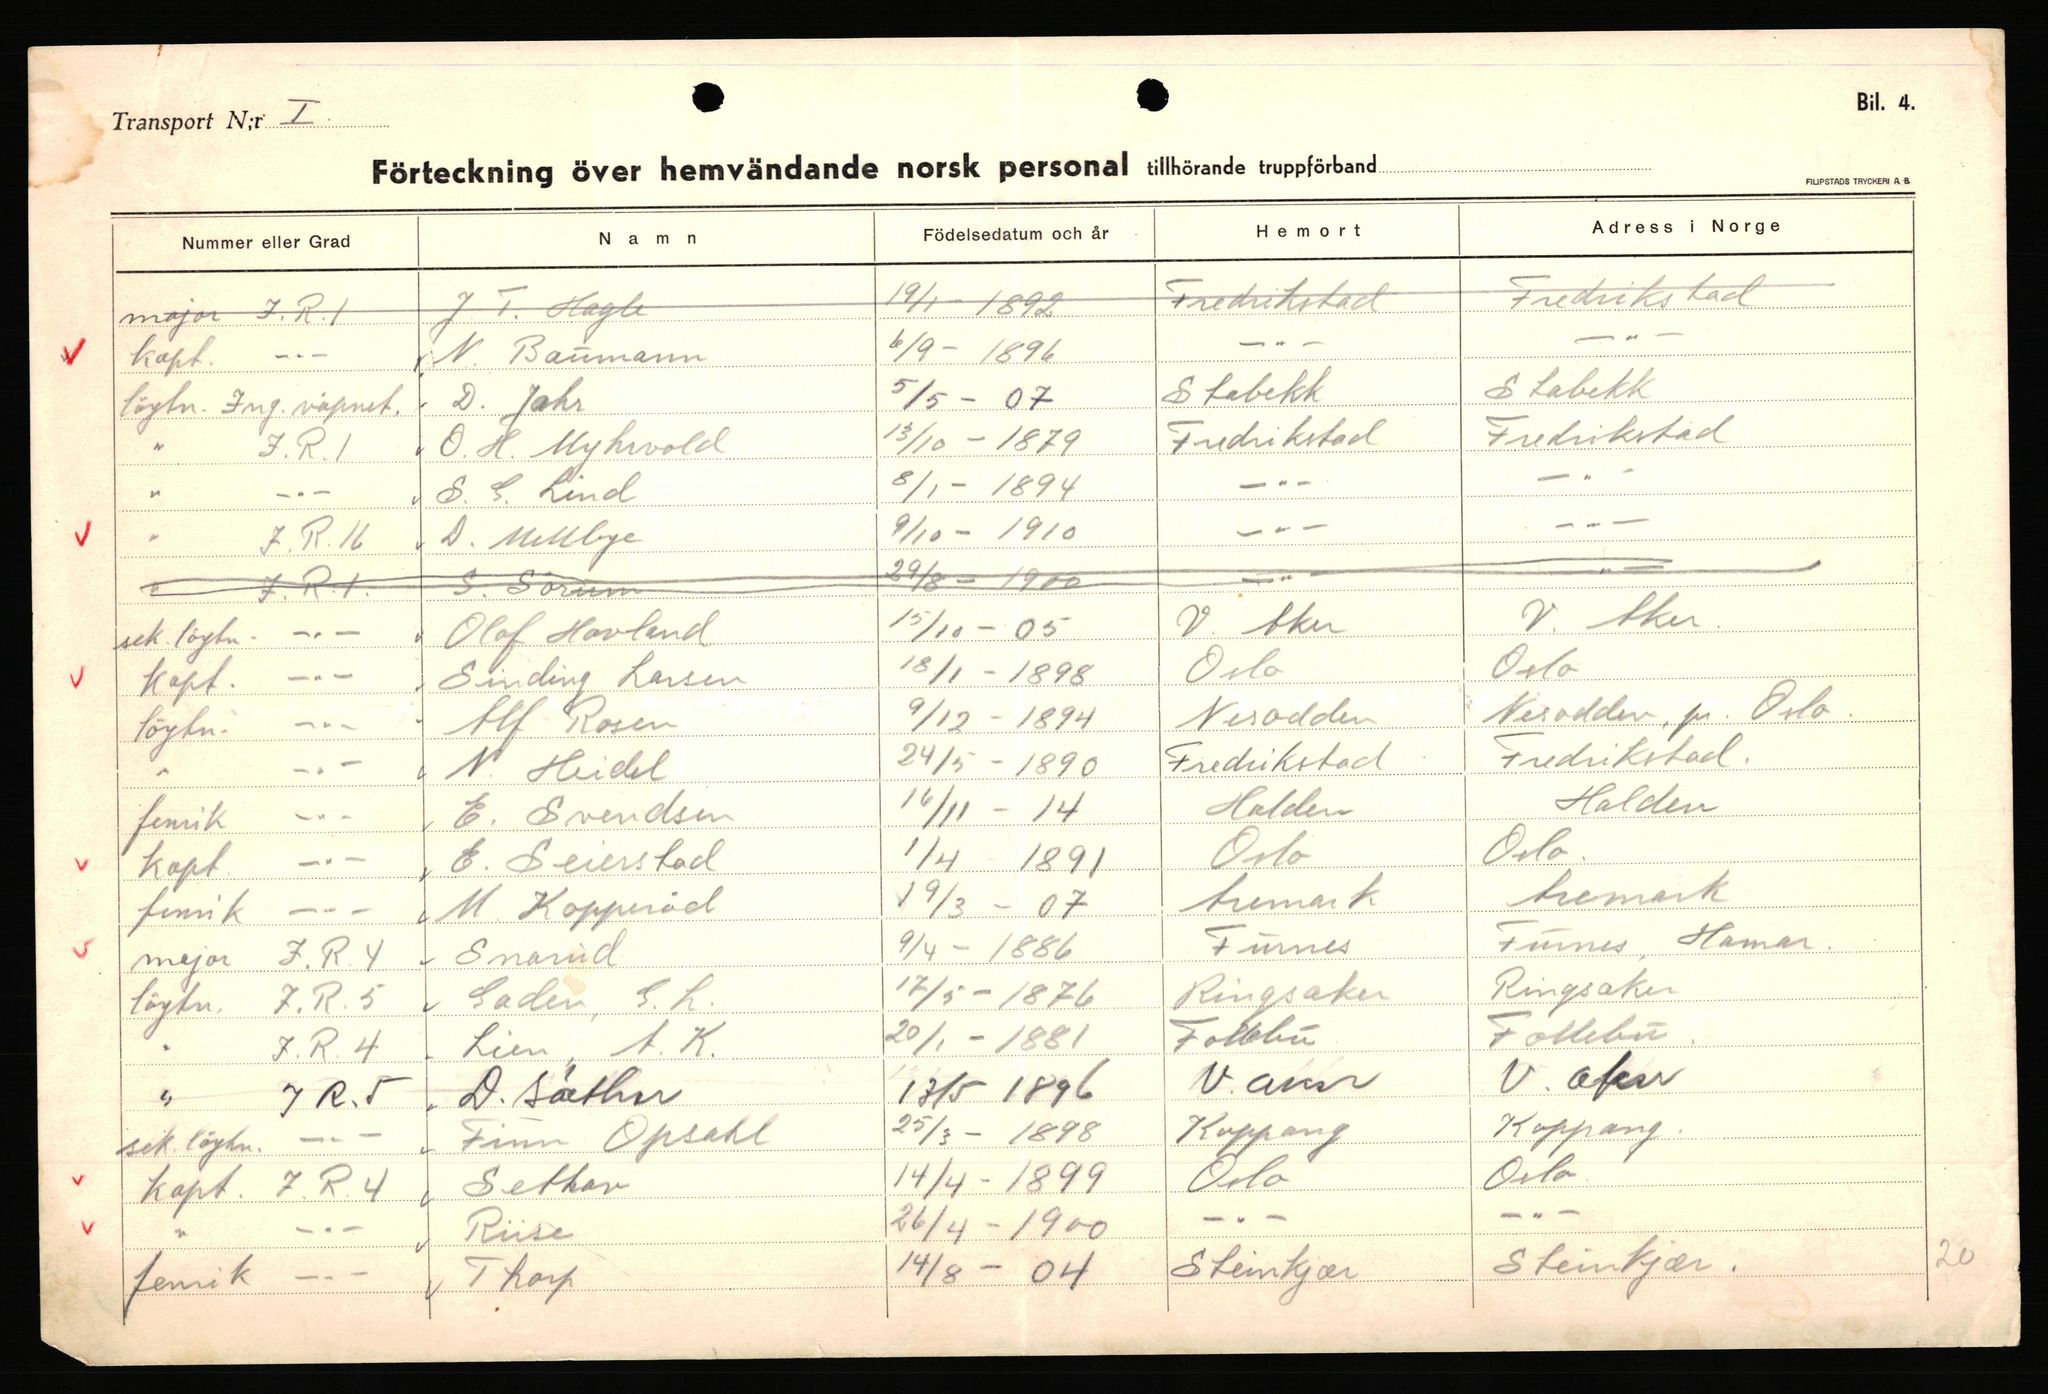 Transport N:r I.
Bil. 4.
Förteckning över hemvändande norsk personal tillhörande truppförband
FILIPSTADS TRYCKERI A. B.
Nummer eller Grad Namn Födelsedatum och år Hemort Adress i Norge
major I.R.1 J. T. Hagle 19/1 - 1892 Fredrikstad Fredrikstad
kapt. -"- N. Baumann 6/9 - 1896 -"- -"-
löytn. Ing. våpnet. D. Jahr 5/5 - 07 Stabekk Stabekk
" I.R.1 O. H. Myhrvold 13/10 - 1879 Fredrikstad Fredrikstad
" -"- S. E. Lind 8/1 - 1894 -"- -"-
" I.R. 16 D. Mellbye 9/10 - 1910 -"- -"-
" I.R.1. S. Sörum 29/8 - 1900 -"- -"-
sek. löytn. -"- Olaf Hovland 15/10 - 05 V. Aker V. Aker
kapt. -"- Sinding Larsen 18/1 - 1898 Oslo Oslo
löytn. -"- Alf Rosen 9/12 - 1894 Nesodden Nesodden, pr. Oslo.
" -"- N. Heidel 24/5 - 1890 Fredrikstad Fredrikstad.
fenrik -"- E. Svendsen 16/11 - 14 Halden Halden
kapt. -"- E. Seierstad 1/4 1891 Oslo Oslo.
fenrik -"- M. Kopperöd 19/3 - 07 Aremark Aremark
major I.R.4 Snarud 9/4 - 1886 Furnes Furnes, Hamar.
löytn. I.R.5 Gaden, G. L. 17/5 - 1876 Ringsaker Ringsaker
" I.R.4 Lien, A. K. 20/1 - 1881 Follebu Follebu.
" I R.5 D. Säther 13/5 1896 V. aker V. aker
sek. löytn. -"- Finn Opsahl 25/3 - 1898 Koppang Koppang.
kapt. I.R.4 Sethar 14/4 - 1899 Oslo Oslo.
" -"- Riise 26/4 - 1900 -"- -"-
fenrik -"- Thorp 14/8 - 04 Steinkjær Steinkjær.
20